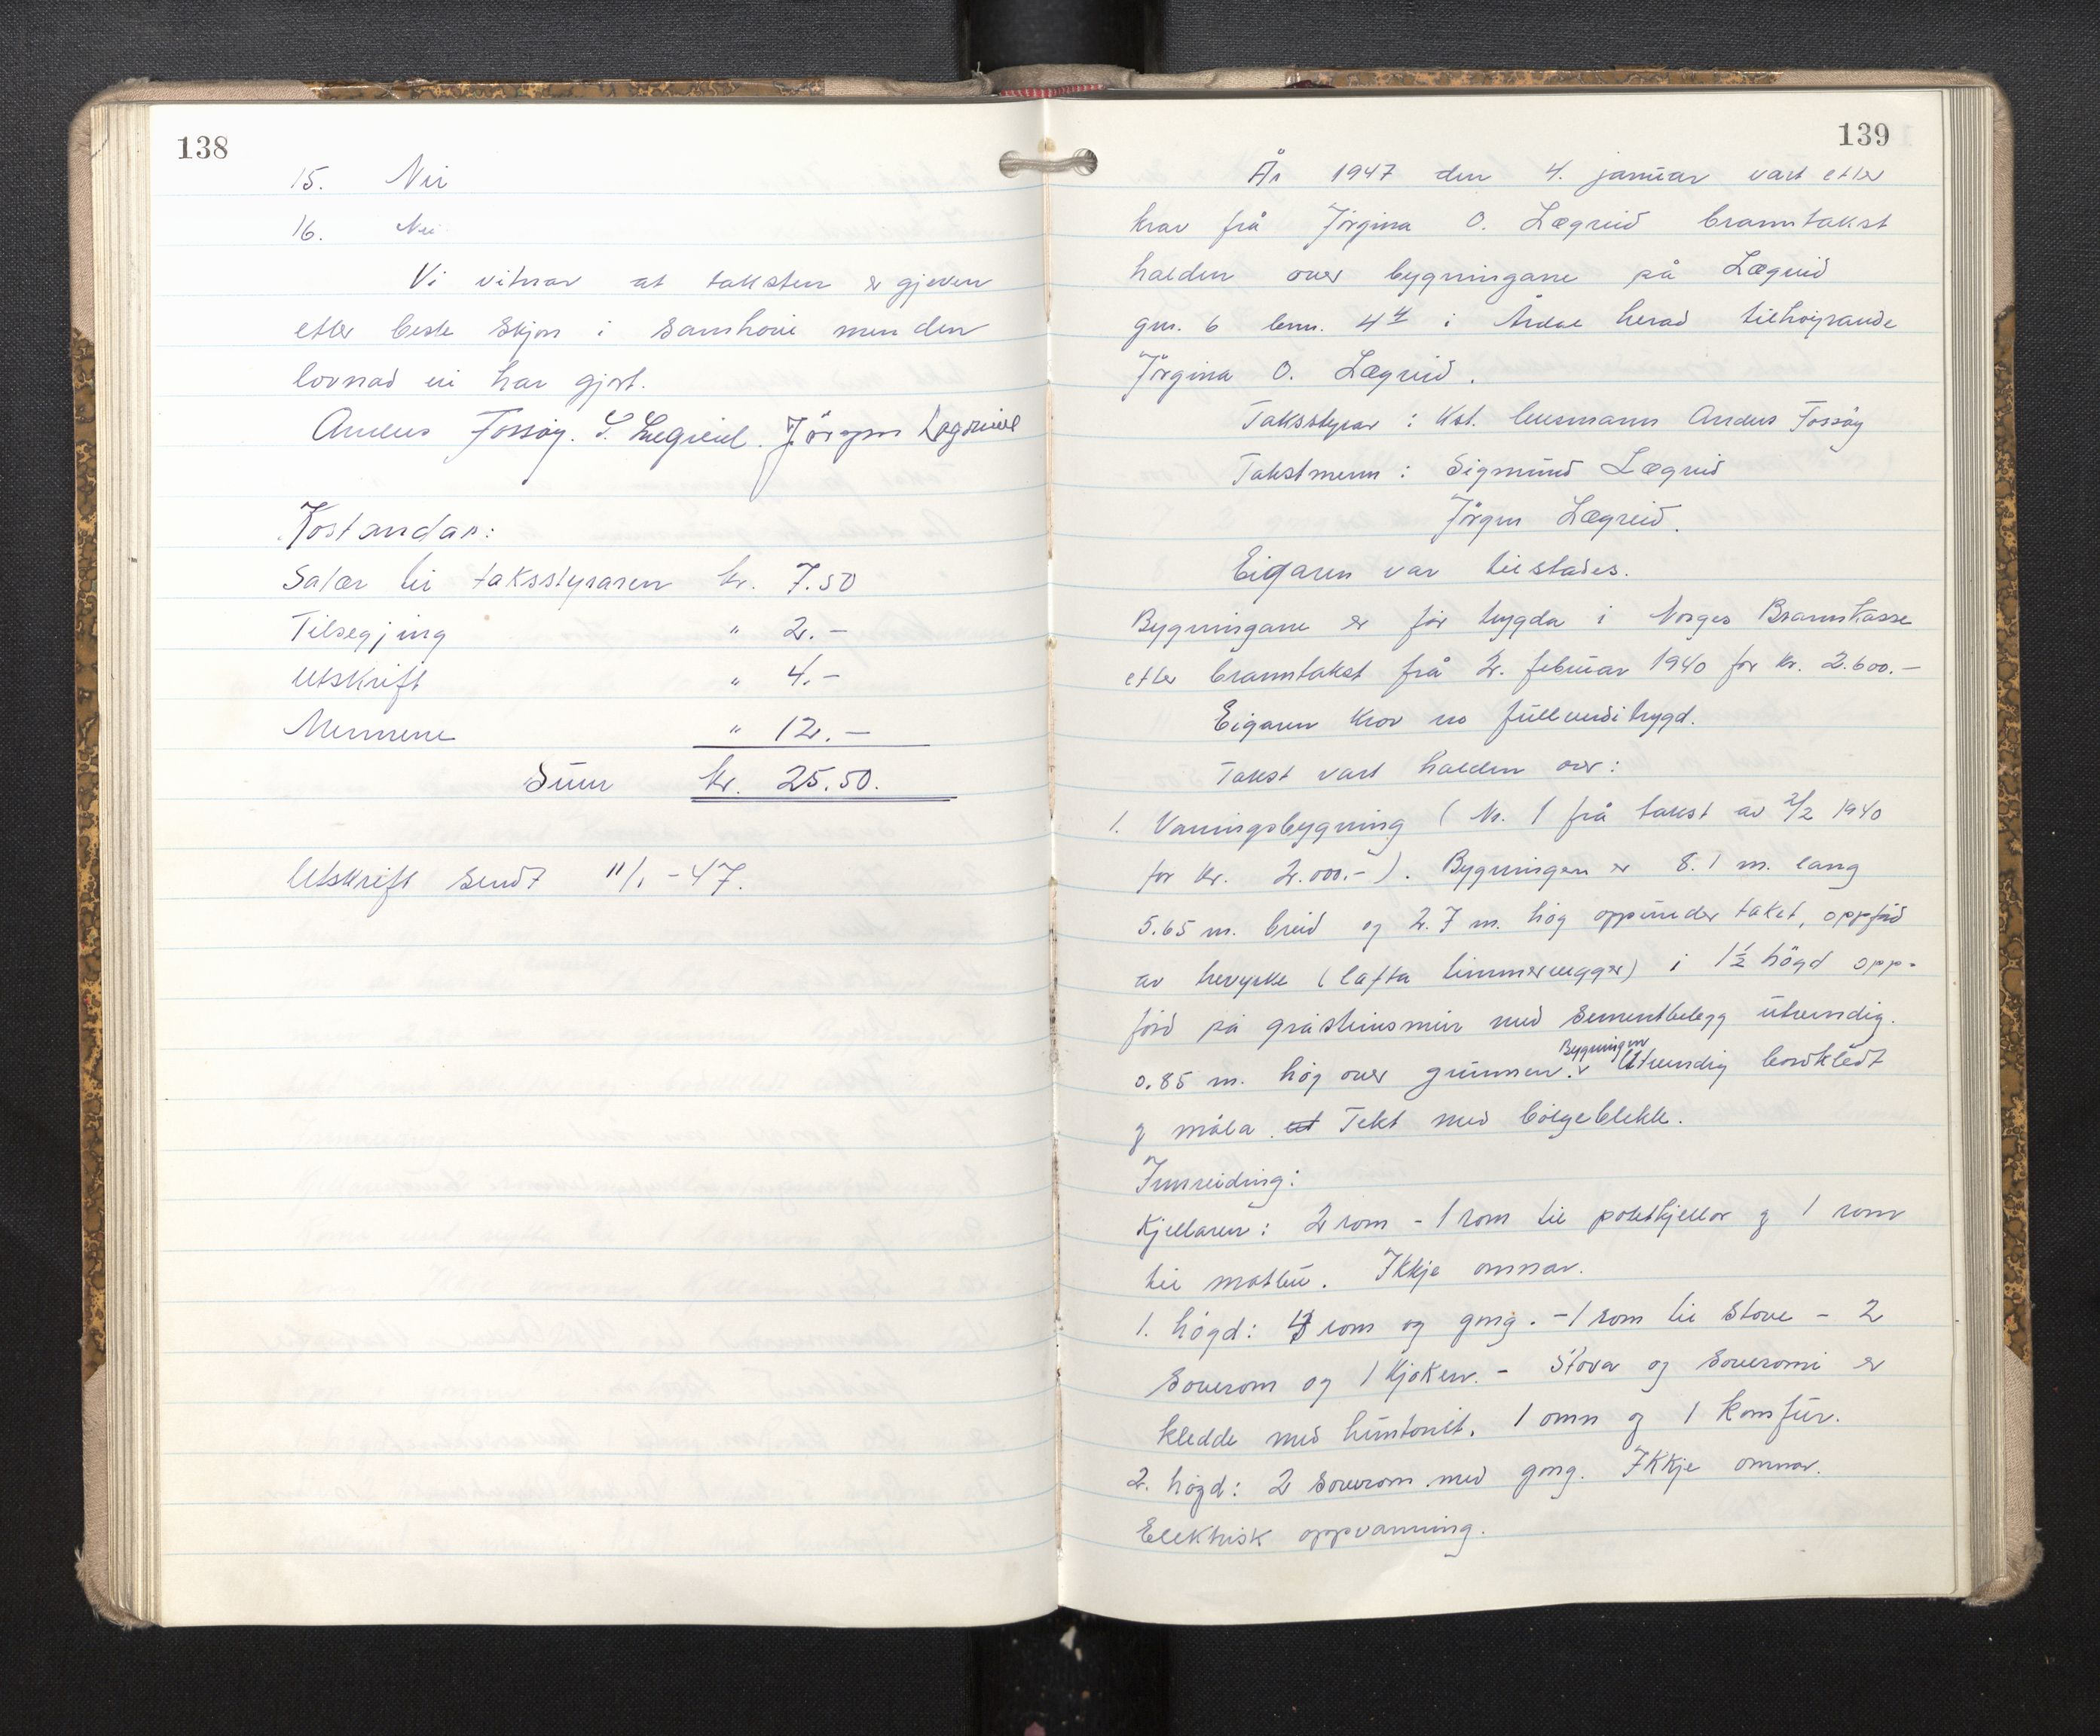 138
15. Nei
16. Nei
Vi vitnar at taksten er gjeven
etter beste skjøn i samhøve med den
lovnad vi har gjort.
Anders Fossøy. S. Lægreid. Jörgen Lægreid
Kostandar:
Salær til taksstyraren kr. 7.50
Tilsegjing " 2.-
Utskrift " 4.-
Mennene " 12.-
Sum kr. 25.50.
Utskrift sendt 11/1-47.
139
År 1947 den 4. januar vart etter
krav frå Jörgina O. Lægreid branntakst
halden over bygningane på Lægreid
gnr. 6 bnr. 44 i Årdal herad tilhøyrande
Jörgina O. Lægreid.
Taksstyrar: Kst. lensmann Anders Fossöy
Takstmenn: Sigmund Lægreid
Jörgen Lægreid.
Eigaren var tilstades.
Bygningane er för trygda i Norges Brannkasse
etter branntakst frå 2. februar 1940 for kr. 2.600.-
Eigaren krov no fullverditrygd.
Takst vart halden over:
1. Vaningsbygning (Nr. 1 frå takst av 2/2 1940
for kr. 2.000.-). Bygningen er 8.1 m. lang
5.65 m. breid og 2.7 m. høg oppunder taket, oppförd
av treverke (lafta timmervegger) i 1½ högd opp-
förd på gråsteinsmur med sementbelegg utvendig.
0.85 m. høg over grunnen. Bygningen Utvendig bordkledt
og måla. at Tekt med bölgeblekk.
Innreiding:
Kjellaren: 2 rom - 1 rom til potetkjellar og 1 rom
til matbu. Ikkje omnar.
1. högd: 4 rom og gong. - 1 rom til stove - 2
soverom og 1 kjøken. - Stova og soveromi er
kledde med huntonit. 1 omn og 1 komfur.
2. högd: 2 soverom med gong. Ikkje omnar.
Elektrisk oppvarming.